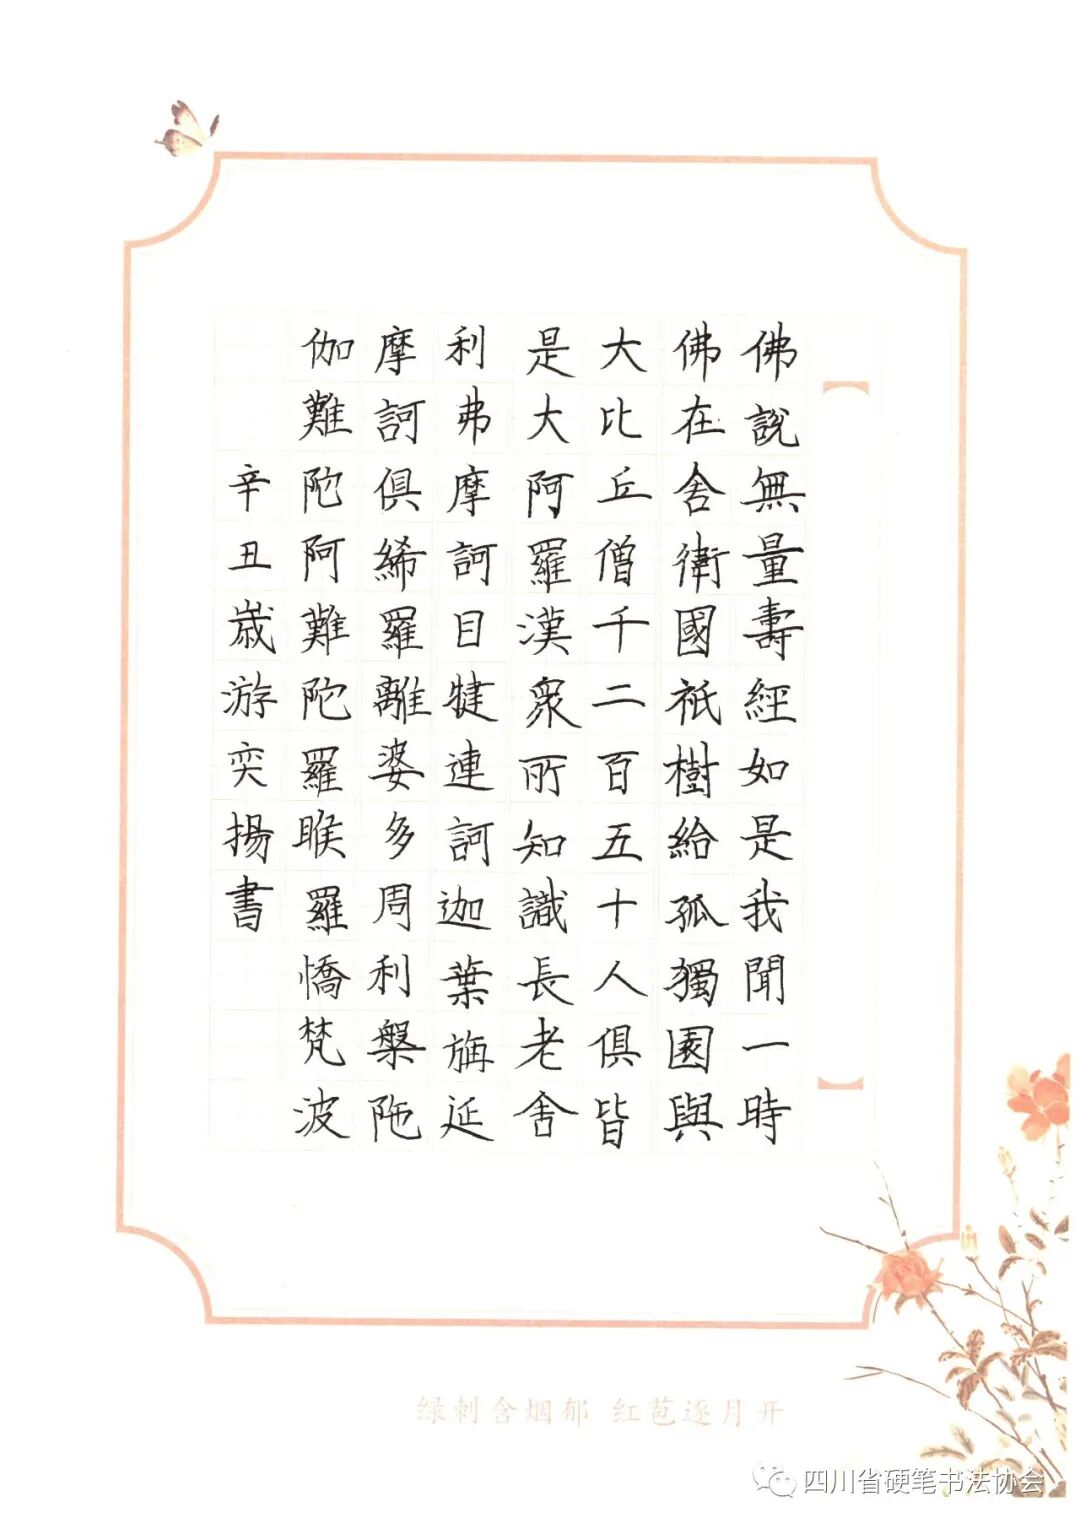 佛說無量壽經如是我聞一時
佛在舍衛國祇樹給孤獨園與
大比丘僧千二百五十人俱皆
是大阿羅漢衆所知識長老舍
利弗摩訶目犍連訶迦葉旃延
摩訶俱絺羅離婆多周利槃陁
伽難陀阿難陀羅睺羅憍梵波
辛丑歲游奕揚書
绿刺含烟郁 红苞逐月开
四川省硬笔书法协会